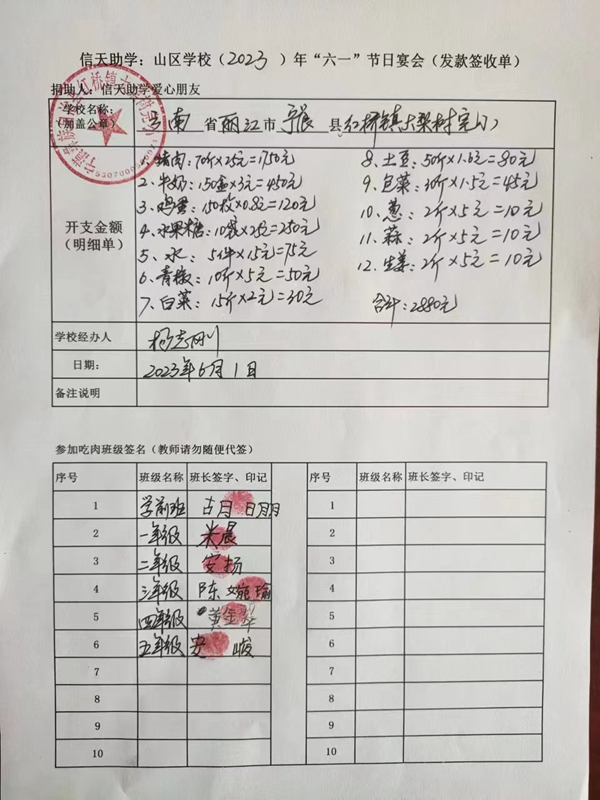 信天助学：山区学校（2023 ）年“六一”节日宴会（发款签收单）
捐助人：信天助学爱心朋友
学校名称：
（加盖公章）
云南 省 丽江 市 宁蒗 县 红桥镇大梁村完小
开支金额
（明细单）
1、猪肉：70斤×25元=1750元
2、牛奶：150盒×3元=450元
3、鸡蛋：150枚×0.8元=120元
4、水果糖：10袋×25元=250元
5、水：5件×15元=75元
6、青椒：10斤×5元=50元
7、白菜：15斤×2元=30元
8、土豆：50斤×1.6元=80元
9、包菜：30斤×1.5元=45元
10、葱：2斤×5元=10元
11、蒜：2斤×5元=10元
12、生姜：2斤×5元=10元
合计：2880元
学校经办人 杨志刚
日期： 2023年6月1日
备注说明
参加吃肉班级签名（教师请勿随便代签）
序号 班级名称 班长签字、印记 序号 班级名称 班长签字、印记
1 学前班 古月 日月月 1
2 一年级 米晨 2
3 二年级 安扬 3
4 三年级 陈婉瑜 4
5 四年级 黄金翠 5
6 五年级 安峻 6
7 7
8 8
9 9
10 10